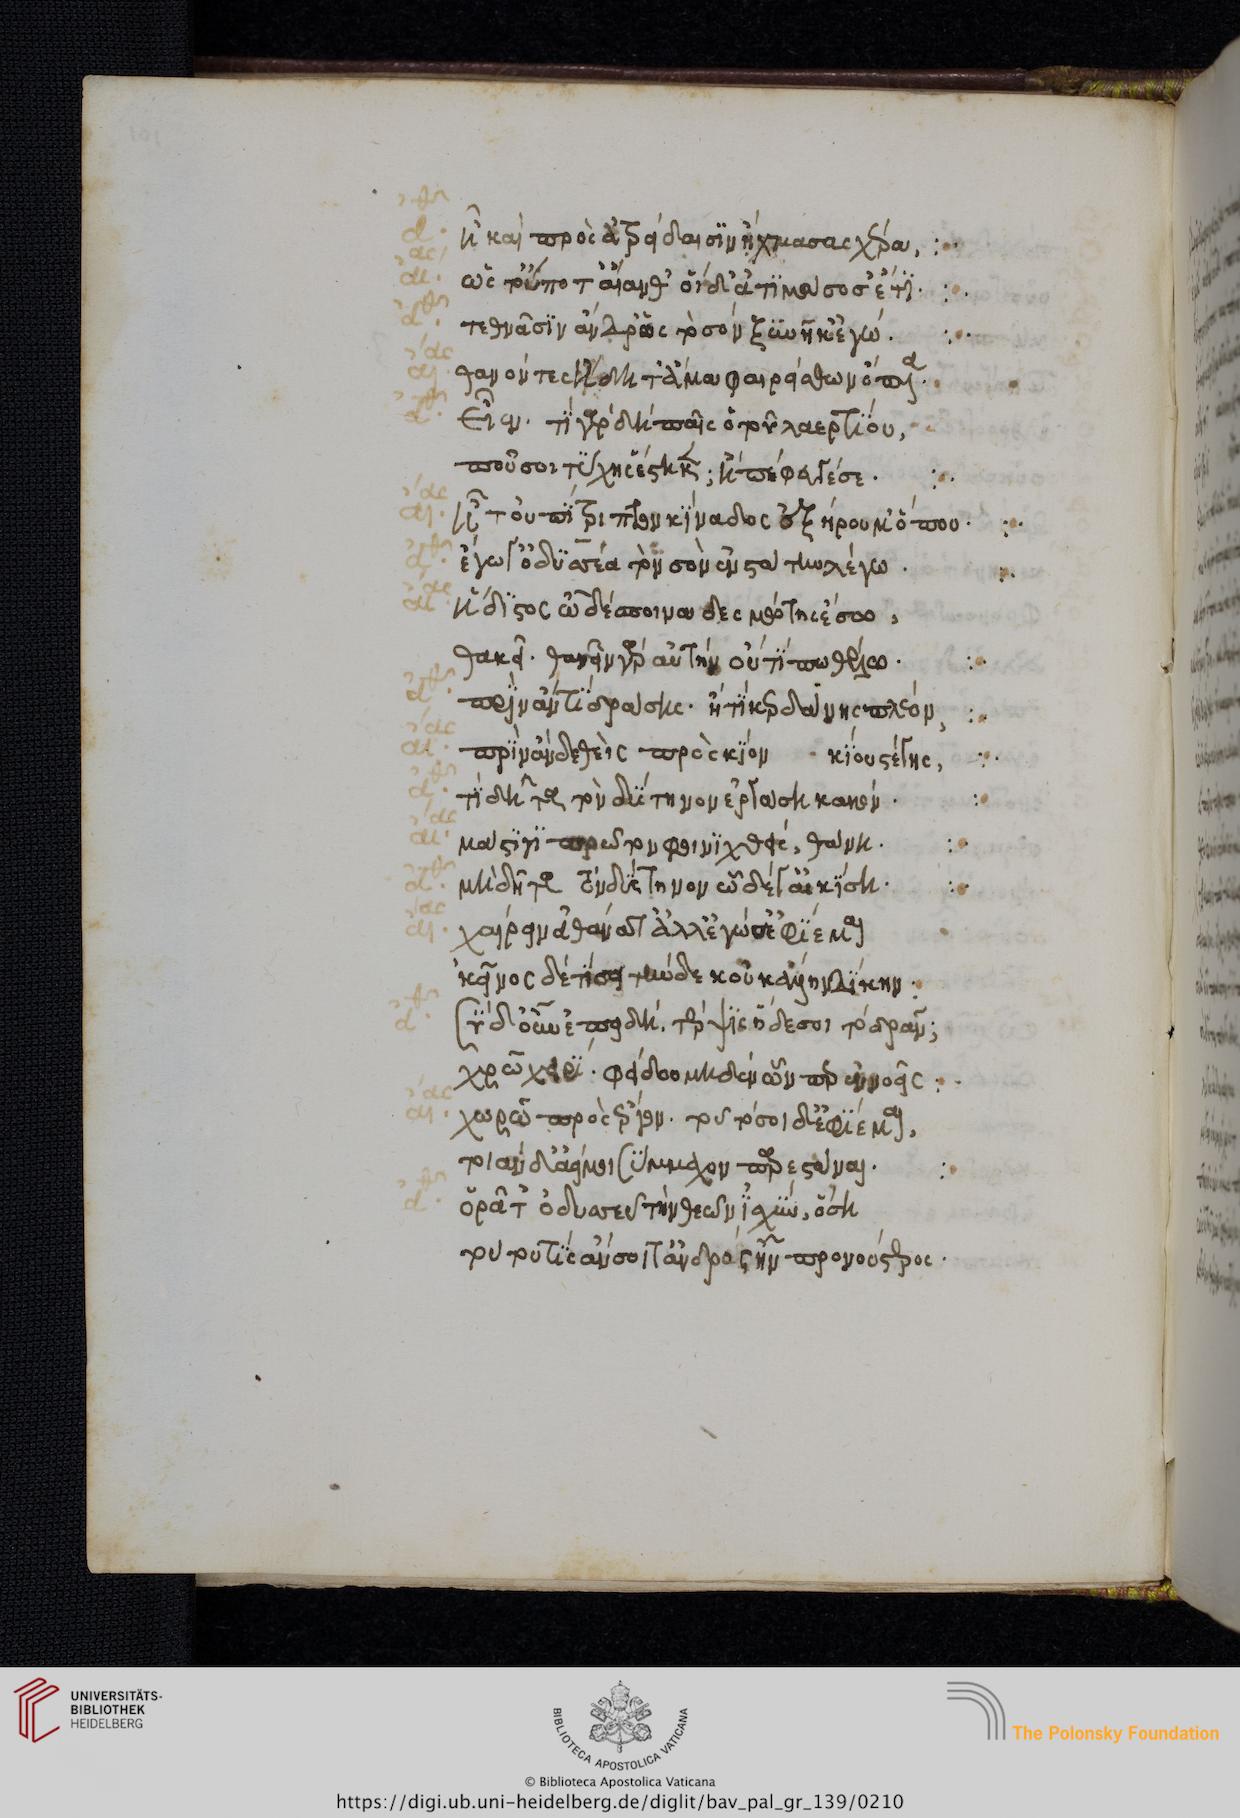 ἀθη
ἦ καὶ πρὸς ἀτρείδαισιν ἤχμασας χέρα,
αἴας
ὥστ' οὔποτ' αἴανθ' οἵδ' ἀτιμάσουσ' ἔτι.
ἀθη
τεθνᾶσιν ἄνδρες ὡς τὸ σὸν ξυνῆκ' ἐγώ.
αἴας
θανόντες ἤδη τἄμ' ἀφαιρείσθων ὅπλα.
ἀθη
εἶεν. τί γὰρ δὴ παῖς ὁ τοῦ λαερτίου,
ποῦ σοι τύχης ἕστηκεν; ἢ πέφευγέ σε.
αἴας
ἦ τοὐπίτριπτον κίναδος ἐξήρου μ' ὅπου.
ἀθη
ἔγωγ' ὀδυσσέα τὸν σὸν ἐνστάτην λέγω.
αἴας
ἥδιστος ὦ δέσποινα δεσμώτης ἔσω,
θακεῖ. θανεῖν γὰρ αὐτὸν οὔ τί πω θέλω.
ἀθη
πρὶν ἂν τί δράσῃς. ἢ τί κερδάνῃς πλέον,
αἴας
πρὶν ἂν δεθεὶς πρὸς κίον κίον' ἑρκείου στέγης,
ἀθη
τί δῆτα τὸν δύστηνον ἐργάσῃ κακόν.
αἴας
μάστιγι πρῶτον νῶτα φοινιχθείς, θάνῃ.
ἀθη
μὴ δῆτα τὸν δύστηνον ὧδέ γ' αἰκίσῃ.
αἴας
χαίρειν ἀθάνα τἄλλ' ἐγώ σ' ἐφίεμαι
κεῖνος δὲ τίσει τήνδε κοὐκ ἄλλην δίκην.
ἀθη
σὺ δ' οὖν ἐπειδὴ. τέρψις ἥδε σοι τὸ δρᾶν;
χρῶ χειρί. φείδου μηδὲν ὧνπερ ἐννοεῖς
αἴας
χωρῶ πρὸς ἔργον. τοῦτό σοι δ' ἐφίεμαι,
τοιάνδ' ἀεί μοι σύμμαχον παρεστάναι.
ἀθη
ὁρᾷς ὀδυσσεῦ τὴν θεῶν ἰσχὺν, ὅση
τούτου τίς ἄν σοι τἀνδρὸς ἢ προνούστερος.
UNIVERSITÄTS-
BIBLIOTHEK
HEIDELBERG
BIBLIOTECA APOSTOLICA VATICANA
The Polonsky Foundation
© Biblioteca Apostolica Vaticana
https://digi.ub.uni-heidelberg.de/diglit/bav_pal_gr_139/0210